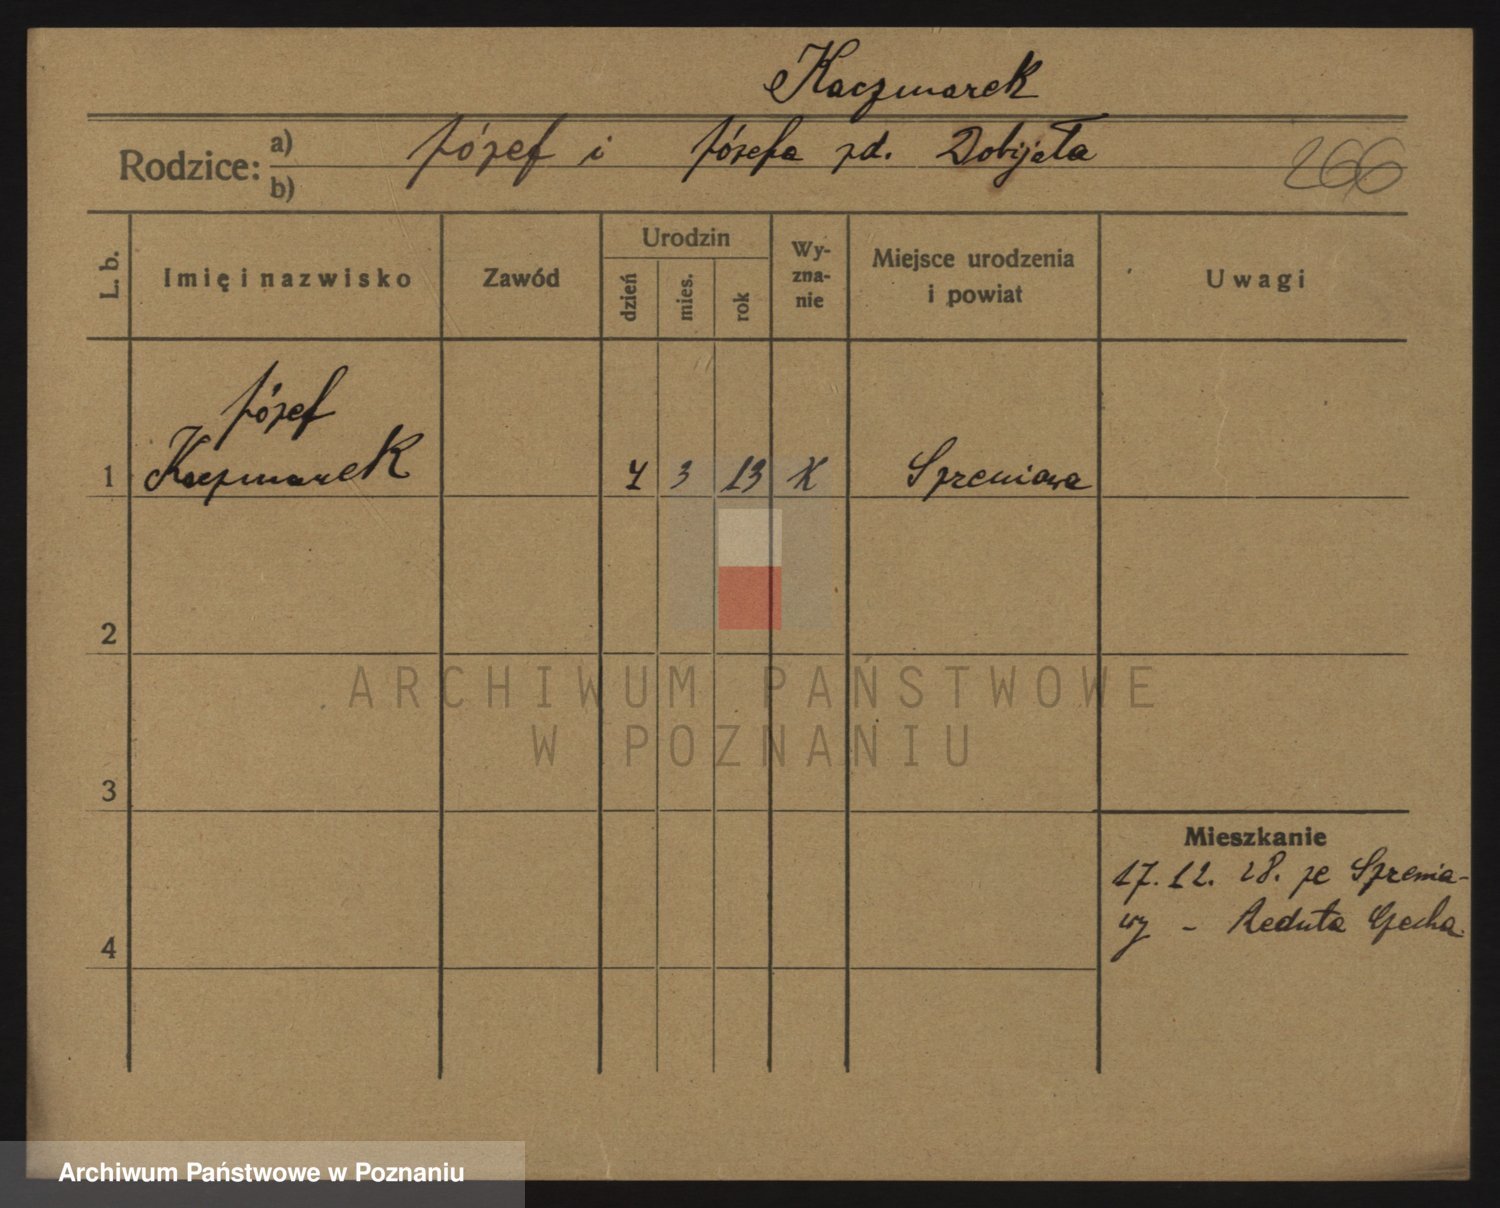 Kaczmarek
Rodzice: a) b)
Józef i Józefa zd. Dobijała
266
L. b.
Imię i nazwisko
Zawód
Urodzin
dzień
mies.
rok
Wy-
zna-
nie
Miejsce urodzenia
i powiat
Uwagi
Józef
1 Kaczmarek 4 3 13 K Spreniawa
2
3
4
Mieszkanie
17. 12. 28. ze Sprenia-
wy - Reduta
ARCHIWUM PAŃSTWOWE
W POZNANIU
Archiwum Państwowe w Poznaniu